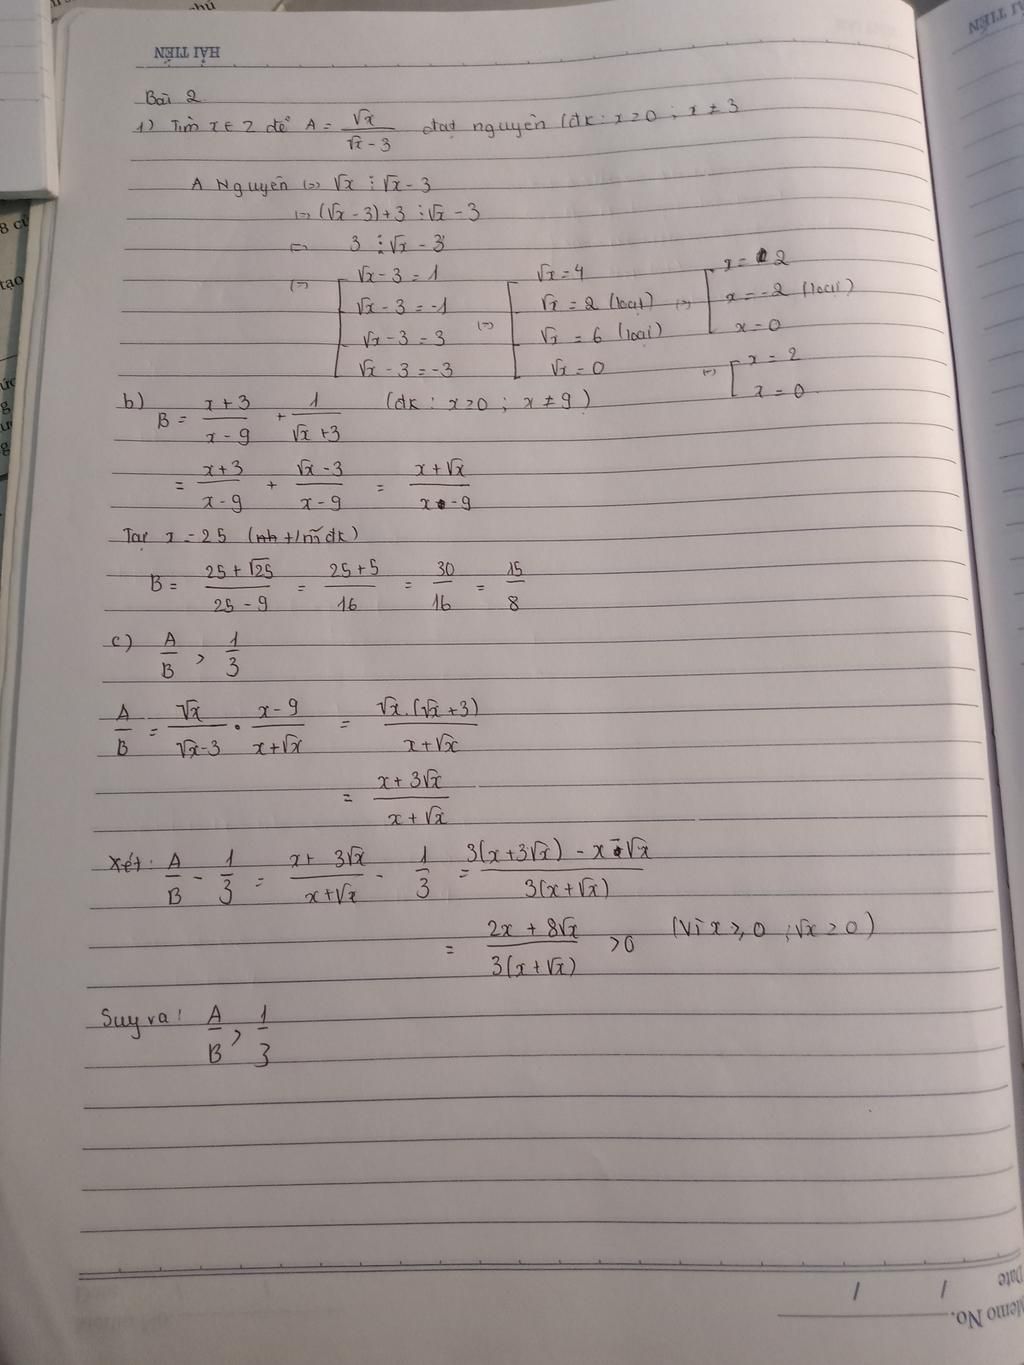 HẢI TIẾN
Bài 2
1) Tìm x ∈ Z để A = √x / (√x - 3) đạt nguyên (đk: x ≥ 0 ; x ≠ 3
A Nguyên (=) √x ⋮ √x - 3
(=) (√x - 3) + 3 ⋮ √x - 3
(=) 3 ⋮ √x - 3
(=) [ √x - 3 = 1 (=) [ √x = 4 (=) [ x = 2
√x - 3 = -1 √x = 2 (loại) x = -2 (loại)
√x - 3 = 3 √x = 6 (loại) x = 0
√x - 3 = -3 √x = 0 (=) [ x = 2
x = 0
b) B = (x + 3)/(x - 9) + 1/(√x + 3) (đk : x ≥ 0 ; x ≠ 9)
= (x + 3)/(x - 9) + (√x - 3)/(x - 9) = (x + √x)/(x - 9)
Tại x = 25 (t/m đk)
B = (25 + √25)/(25 - 9) = (25 + 5)/16 = 30/16 = 15/8
c) A/B > 1/3
A/B = √x/(√x - 3) · (x - 9)/(x + √x) = √x.(√x + 3)/(x + √x)
= (x + 3√x)/(x + √x)
Xét: A/B - 1/3 = (x + 3√x)/(x + √x) - 1/3 = (3(x + 3√x) - x - √x)/(3(x + √x))
= (2x + 8√x)/(3(x + √x)) > 0 (Vì x ≥ 0 ; √x ≥ 0)
Suy ra: A/B > 1/3
Date / /
Memo No.